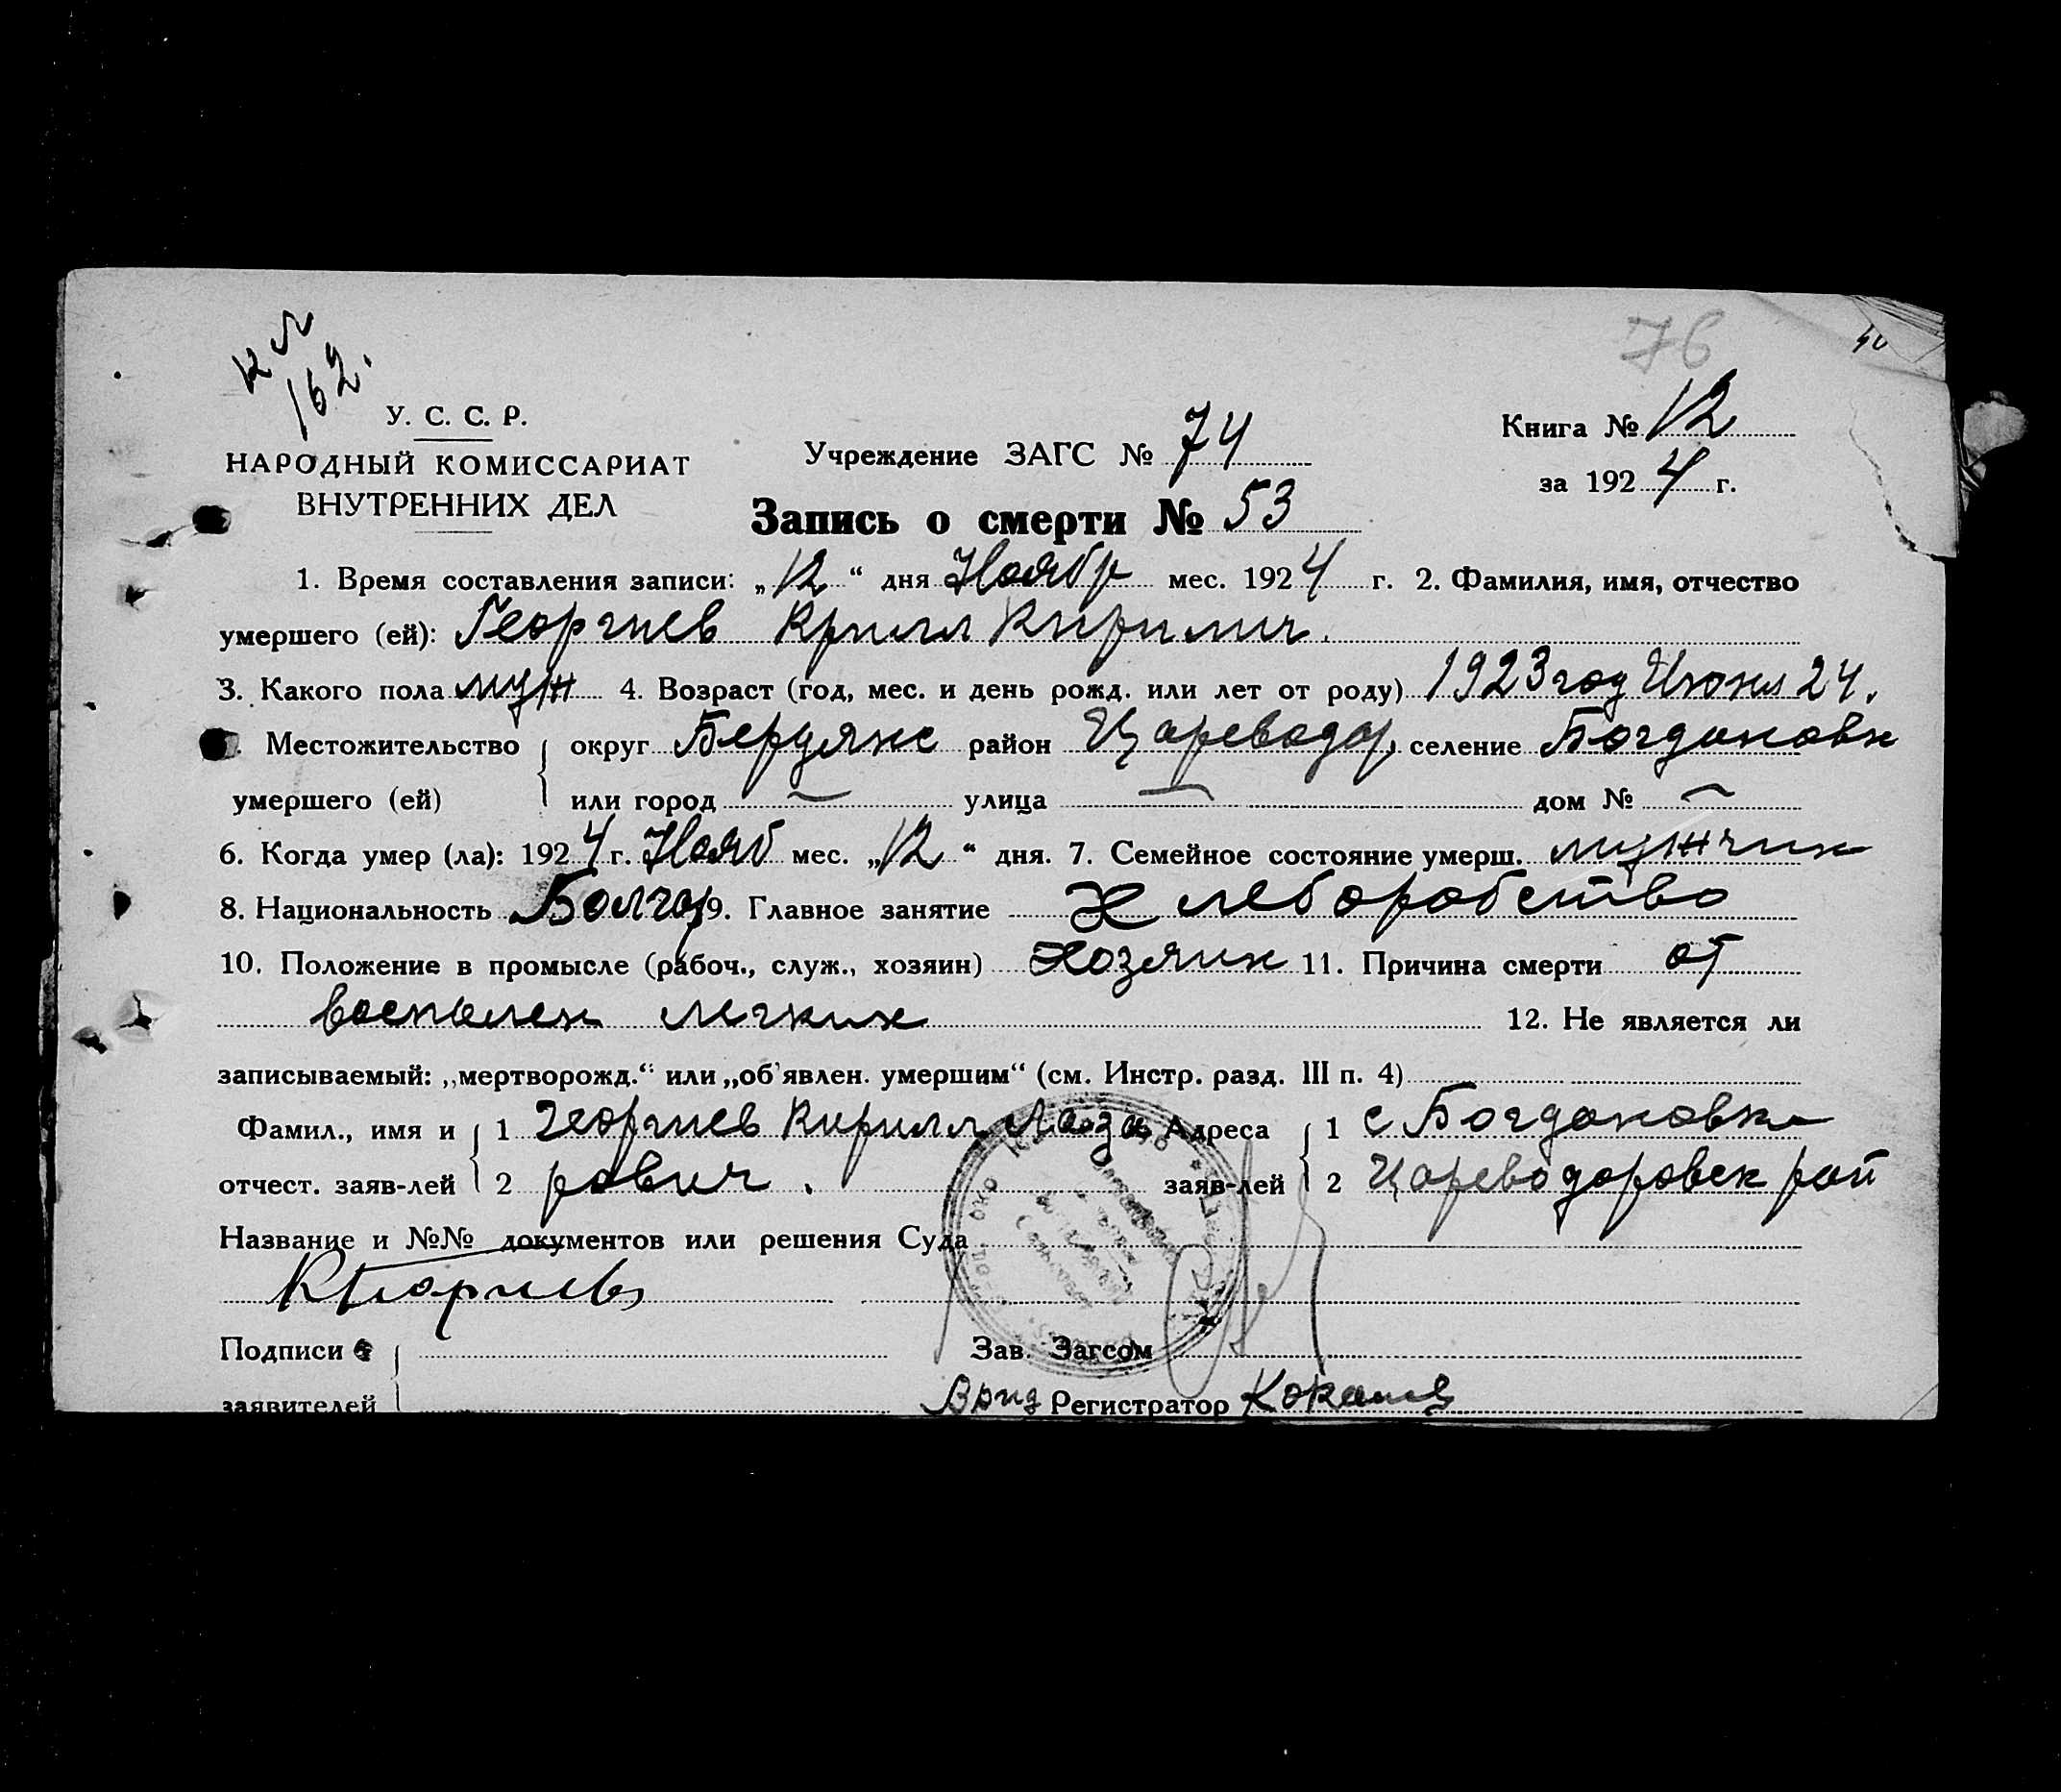 кл
162.
76
У. С. С. Р.
НАРОДНЫЙ КОМИССАРИАТ
ВНУТРЕННИХ ДЕЛ
Учреждение ЗАГС № 74
Книга № 12
за 1924 г.
Запись о смерти № 53
1. Время составления записи: „12“ дня Ноябр мес. 1924 г. 2. Фамилия, имя, отчество
умершего (ей): Георгиев Крилл Кирилич.
3. Какого пола муж 4. Возраст (год, мес. и день рожд. или лет от роду) 1923 год Июня 24.
Местожительство округ Бердянс район Цареводар, селение Богдановк
умершего (ей) или город — улица — дом № —
6. Когда умер (ла): 1924 г. Нояб мес. „12“ дня. 7. Семейное состояние умерш. мужчин
8. Национальность Болгар 9. Главное занятие Хлеборобство
10. Положение в промысле (рабоч., служ., хозяин) Хозяин 11. Причина смерти от
воспален легких 12. Не является ли
записываемый: „мертворожд.“ или „об'явлен. умершим“ (см. Инстр. разд. III п. 4)
Фамил., имя и 1 Георгиев Кирилл Лаза Адреса 1 с Богдановка
отчест. заяв-лей 2 рович. заяв-лей 2 Цареводаровск рай
Название и №№ документов или решения Суда
КГеоргиев
Подписи Зав. Загсом
заявителей Врид Регистратор